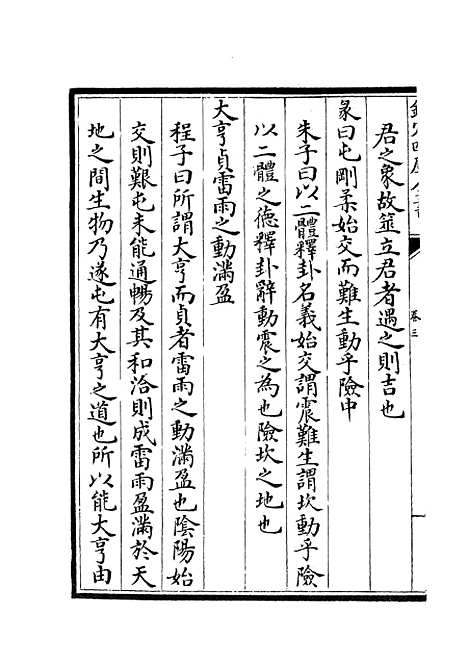 卷三
君之象故筮立君者遇之則吉也
彖曰屯剛柔始交而難生動乎險中
朱子曰以二體釋卦名義始交謂震難生謂坎動乎險
以二體之德釋卦辭動震之為也險坎之地也
大亨貞雷雨之動滿盈
程子曰所謂大亨而貞者雷雨之動滿盈也陰陽始
交則艱屯未能通暢及其和洽則成雷雨盈滿於天
地之間生物乃遂屯有大亨之道也所以能大亨由